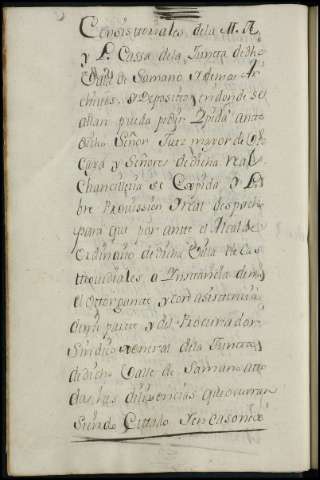 Consistoriales de la M. N.
y L. Cassa de la Junta de dho
Valle de Samano y demas Ar
chivos, y Deposito, en donde se
allan pueda pedir y pida ante
dicho Señor Juez mayor de
caya y Señores de dicha real
Chancilleria se Expida, y Li
bre Provission y real despacho
para que por ante el Alcalde
ordinario de dicha Villa de Cas
trourdiales a Ynstancia de mi
el Otorgante y con asistencia
de mi parte y del Procurador
Sindico General de la Junta
de dicho Valle de Samano
das las diligencias que ocurran
Siendo Cittado Y en caso